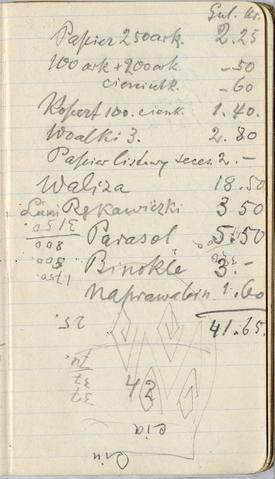 Gul. Kr.
Papier 250 ark. 2.25
100 ark + 200 ark -50
cieniutk. -60
Kopert 100. cienk. 1.40.
Woalki 3. 2.80
Papier listowy seces. 2.-
Waliza 18.50
Rękawiczki 3 50
Parasol 5.50
Binokle 3.-
Naprawa bin. 1.60
41.65.
3150
800
800
1750
25.
74
37
37
42